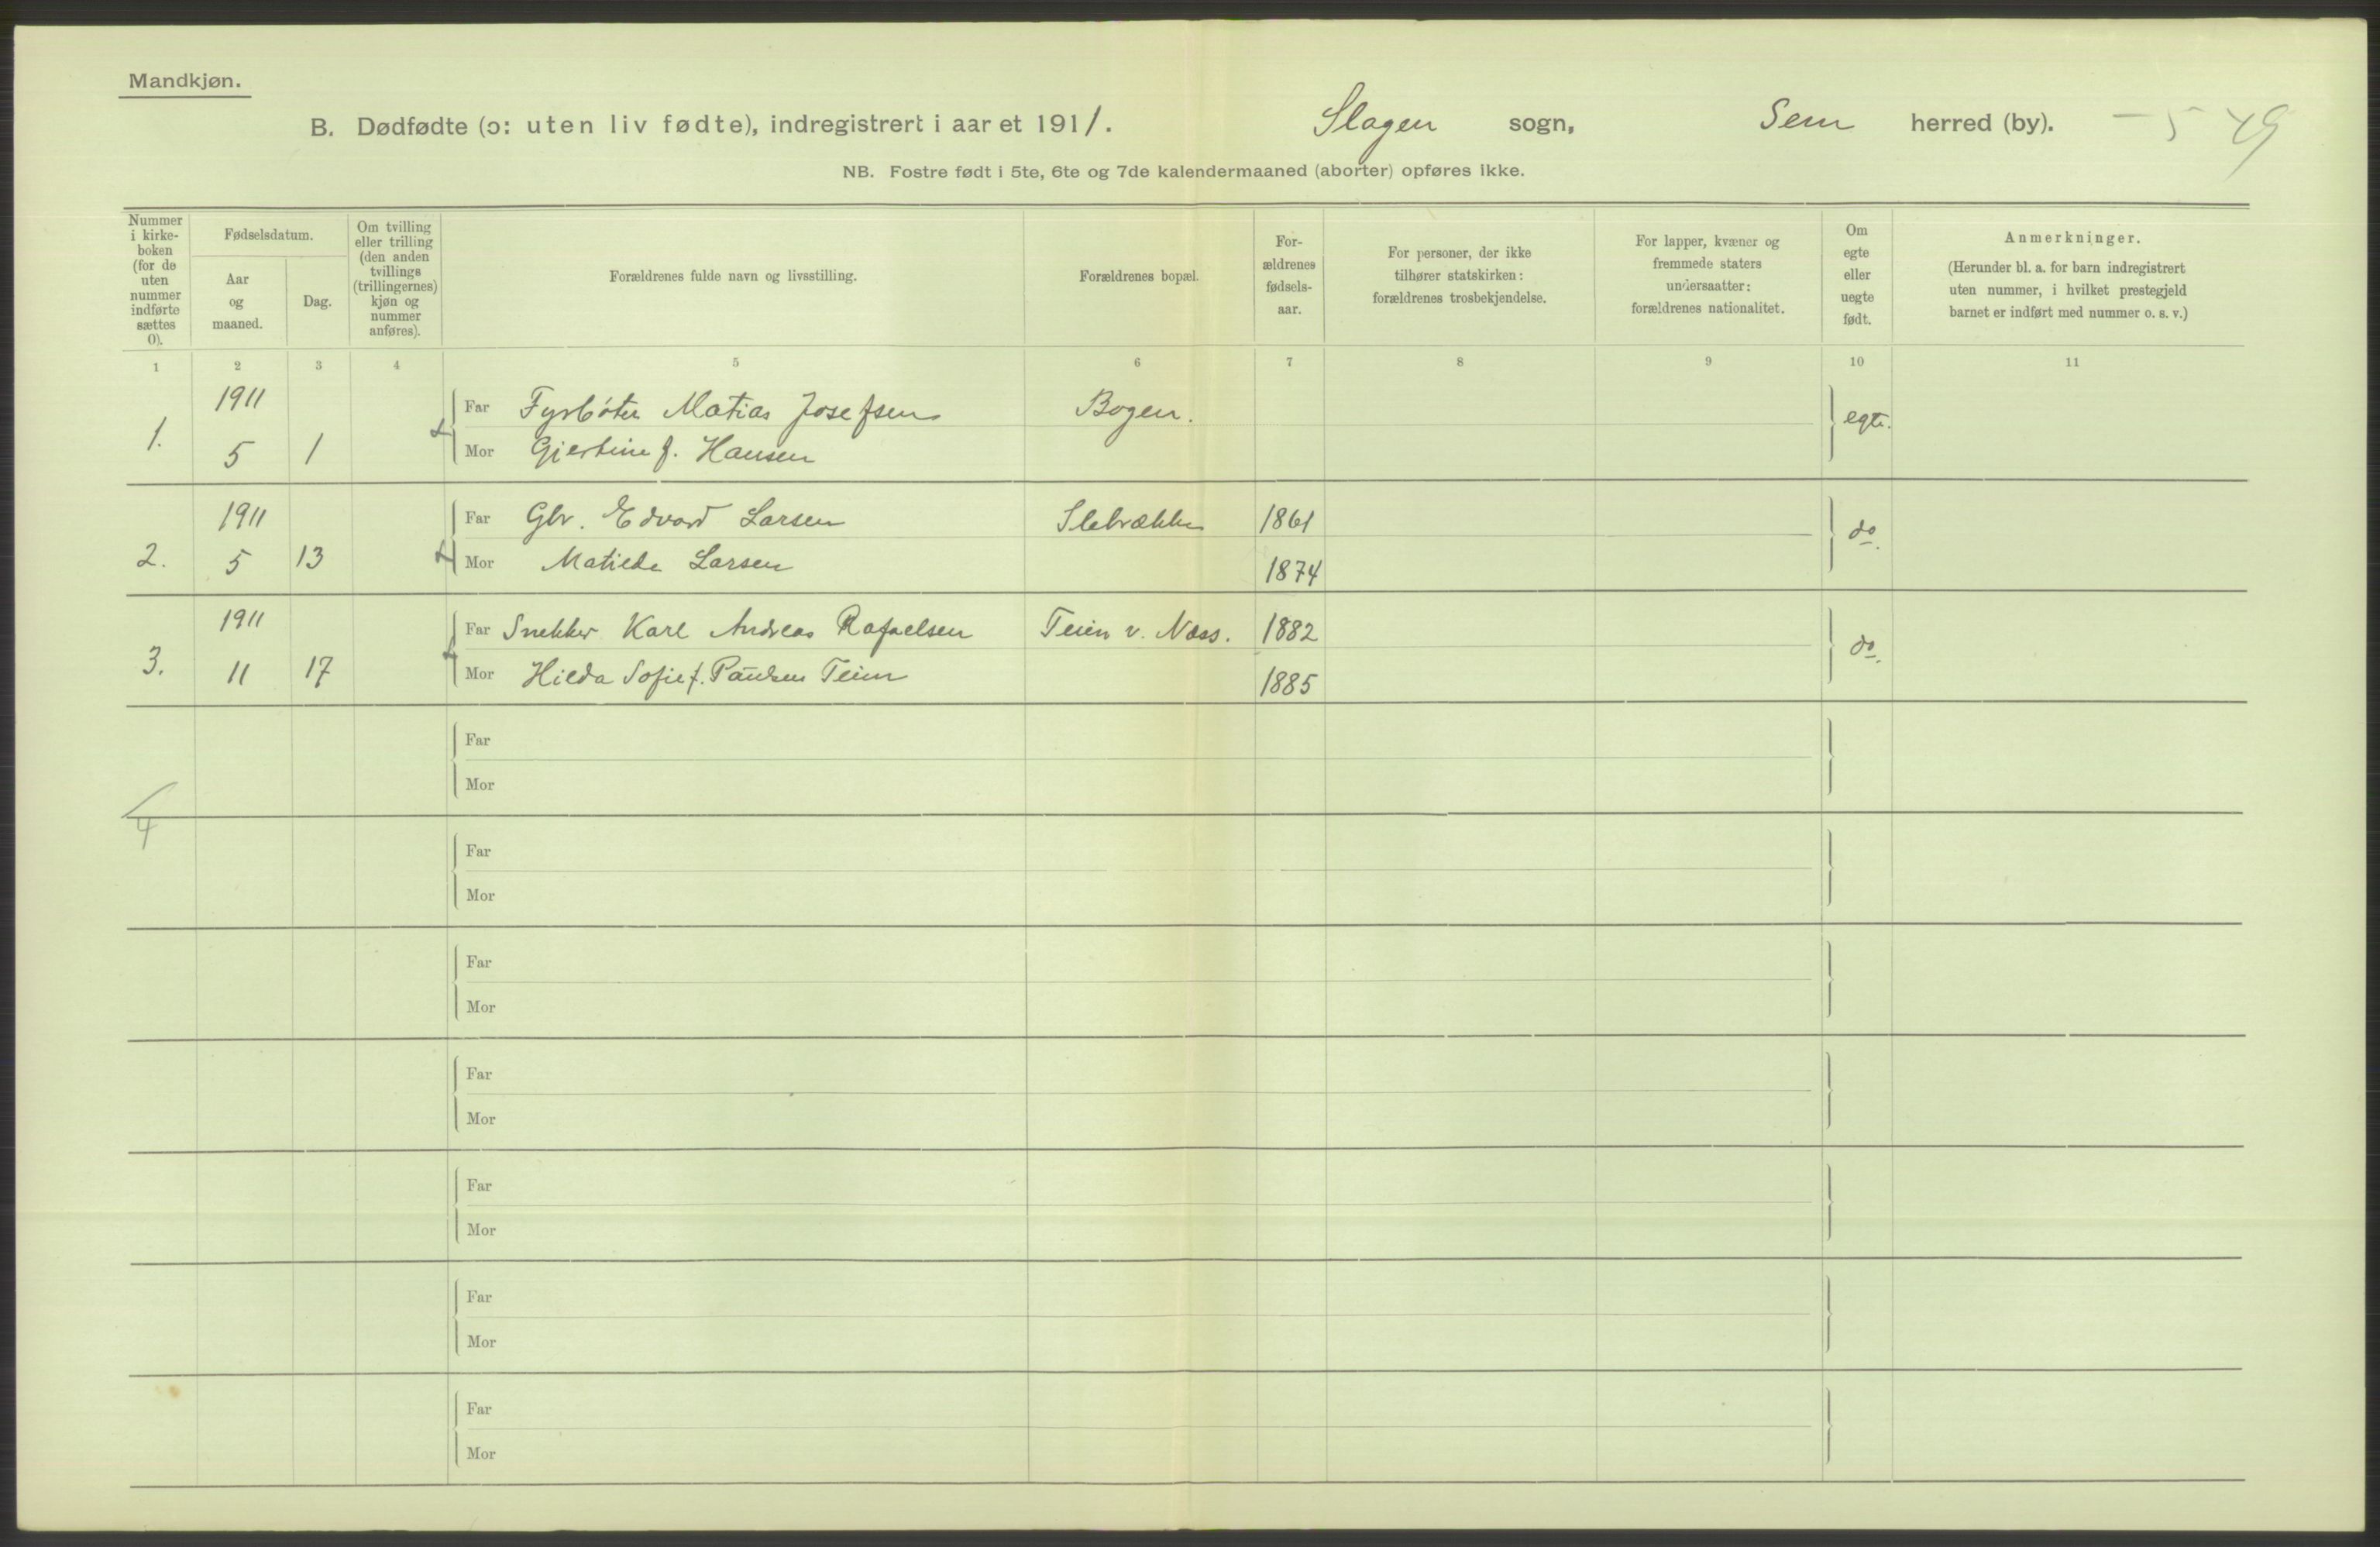 Mandkjøn.
B. Dødfødte (ɔ: uten liv fødte), indregistrert i aaret 1911. Slagen sogn, Sem herred (by). – 5 49
NB. Fostre født i 5te, 6te og 7de kalendermaaned (aborter) opføres ikke.
Nummer i kirke-boken (for de uten nummer indførte sættes 0).
Fødselsdatum.
Aar og maaned.
Dag.
Om tvilling eller trilling (den anden tvillings (trillingernes) kjøn og nummer anføres).
Forældrenes fulde navn og livsstilling.
Forældrenes bopæl.
For-ældrenes fødsels-aar.
For personer, der ikke tilhører statskirken: forældrenes trosbekjendelse.
For lapper, kvæner og fremmede staters undersaatter: forældrenes nationalitet.
Om egte eller uegte født.
Anmerkninger.
(Herunder bl. a. for barn indregistrert uten nummer, i hvilket prestegjeld barnet er indført med nummer o. s. v.)
1 2 3 4 5 6 7 8 9 10 11
1. 1911 5 1 Far Fyrbøter Matias Josefsen Bogen. egte.
Mor Gjertine f. Hansen
2. 1911 5 13 Far Gbr. Edvard Larsen 1861 do.
Mor Matilde Larsen 1874
3. 1911 11 17 Far Snekker Karl Andreas Rafaelsen Teien v. Næss. 1882 do.
Mor Hilda Sofie f. Paulsen Teien 1885
Far
Mor
4
Far
Mor
Far
Mor
Far
Mor
Far
Mor
Far
Mor
Far
Mor